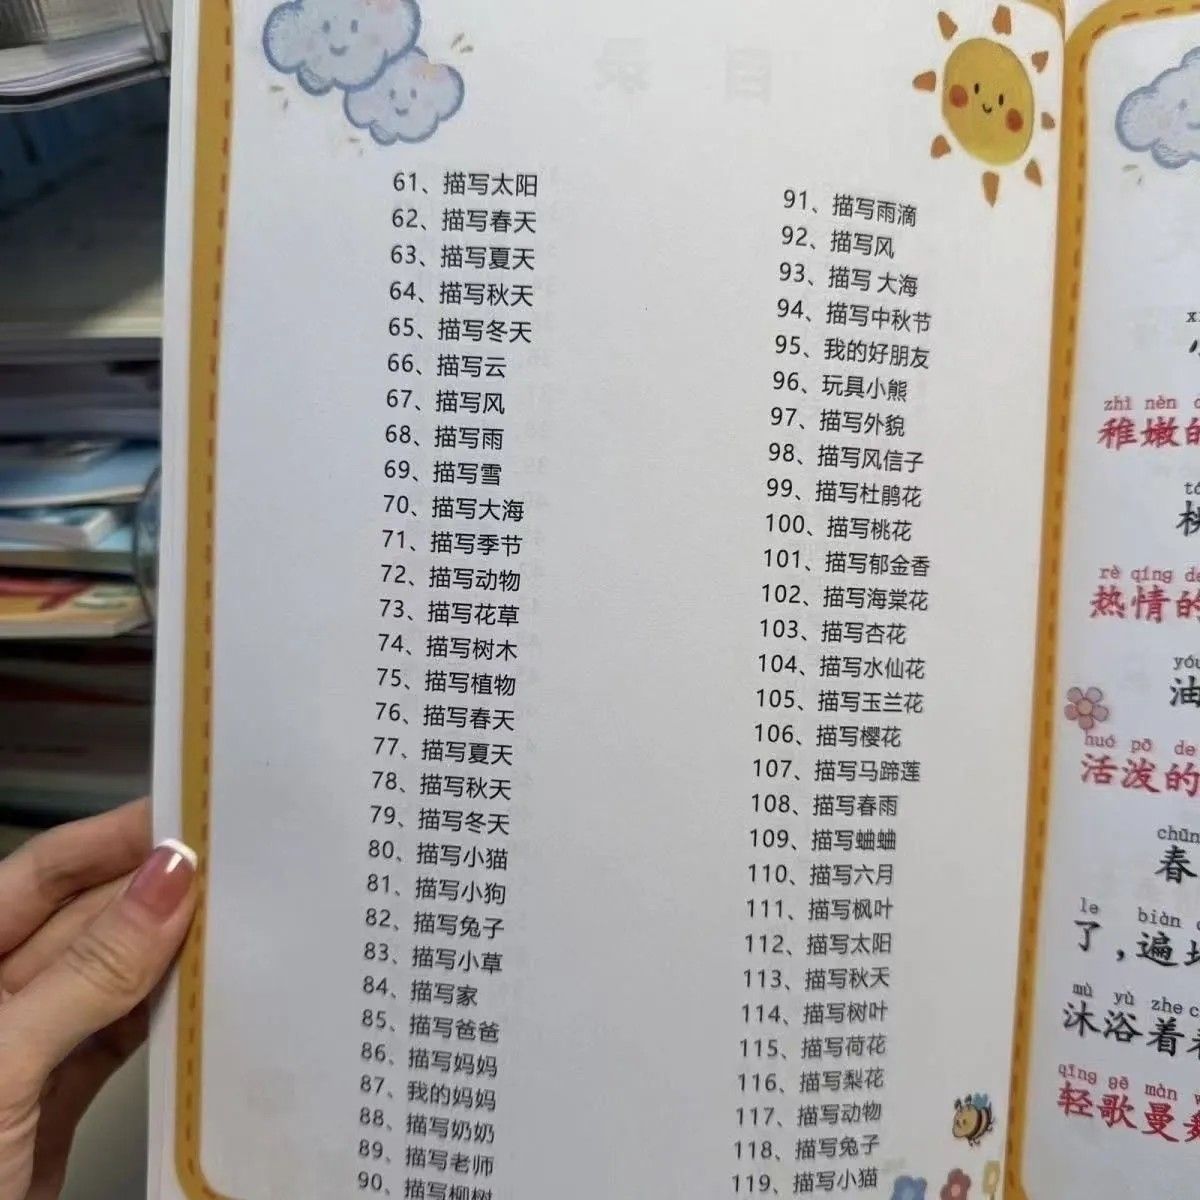 61、描写太阳
62、描写春天
63、描写夏天
64、描写秋天
65、描写冬天
66、描写云
67、描写风
68、描写雨
69、描写雪
70、描写大海
71、描写季节
72、描写动物
73、描写花草
74、描写树木
75、描写植物
76、描写春天
77、描写夏天
78、描写秋天
79、描写冬天
80、描写小猫
81、描写小狗
82、描写兔子
83、描写小草
84、描写家
85、描写爸爸
86、描写妈妈
87、我的妈妈
88、描写奶奶
89、描写老师
90、描写柳树
91、描写雨滴
92、描写风
93、描写 大海
94、描写中秋节
95、我的好朋友
96、玩具小熊
97、描写外貌
98、描写风信子
99、描写杜鹃花
100、描写桃花
101、描写郁金香
102、描写海棠花
103、描写杏花
104、描写水仙花
105、描写玉兰花
106、描写樱花
107、描写马蹄莲
108、描写春雨
109、描写蛐蛐
110、描写六月
111、描写枫叶
112、描写太阳
113、描写秋天
114、描写树叶
115、描写荷花
116、描写梨花
117、描写动物
118、描写兔子
119、描写小猫
zhì nèn
稚嫩的
rè qíng de
热情的
yóu
油
huó pō de
活泼的
chūn
春
le biàn
了,遍
mù yù zhe
沐浴着
qīng gē màn
轻歌曼